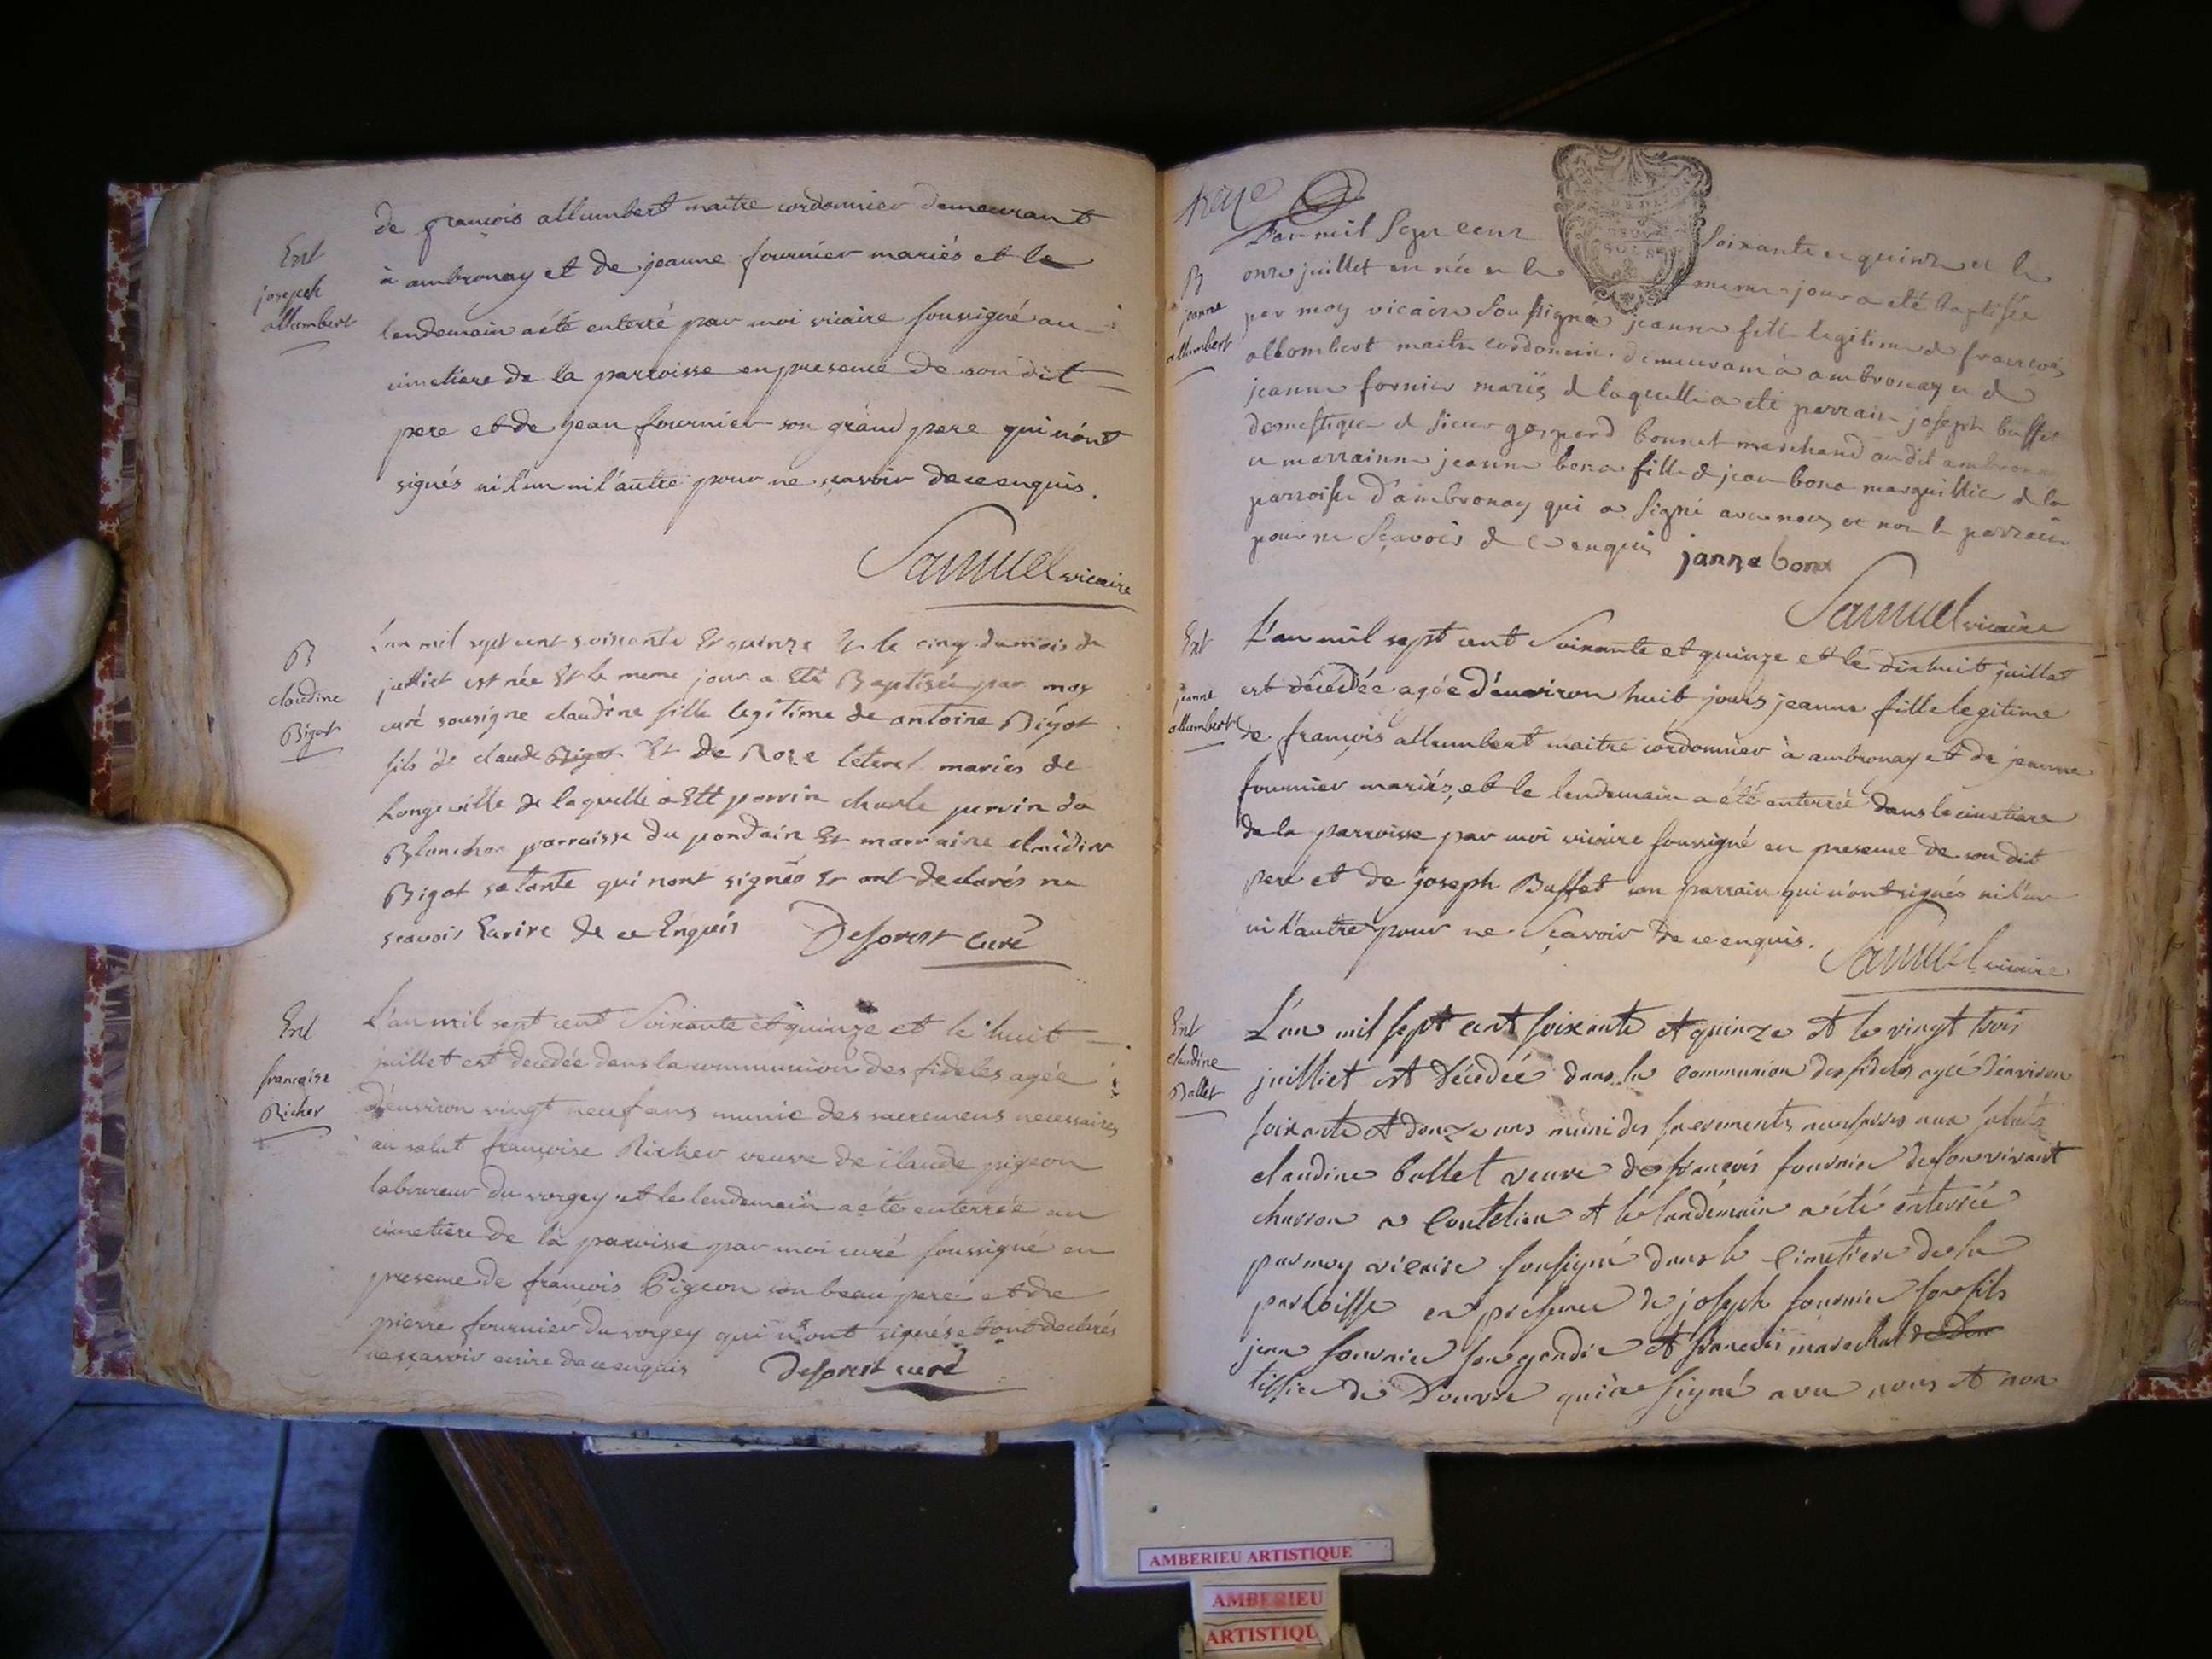 de françois allumbert maitre cordonnier demeurant
Ent
joseph
allumbert
à ambronay et de jeanne fournier mariés et le
lendemain a été enterré par moi vicaire soussigné au
cimetiere de la parroisse en presence de son dit
pere et de jean fournier son grand pere qui n'ont
signés ni l'un ni l'autre pour ne sçavoir de ce enquis.
Samuel vicaire
B
claudine
Bigot
L'an mil sept cent soixante Et quinze Et le cinq du mois de
juillet est née Et le meme jour a Eté Baptisée par moy
curé sousigne claudine fille legitime de antoine Bigot
fils de claude Bigot Et de Roze mariés de
Longeville de laquelle a Eté parrin charle
parroisse du pondain Et marraine claudine
Bigot sa tante qui nont signés Et ont declarés ne
scavois Ecrire de ce Enquis Deforest curé
Ent
françoise
Richer
L'an mil sept cent soixante et quinze et le huit
juillet est decedée dans la communion des fideles agée
d'environ vingt neuf ans munie des sacremens necessaires
au salut françoise Richer veuve de claude pigeon
laboureur du vorgey et le lendemain a été enterrée au
cimetiere de la parroisse par moi curé soussigné en
presence de françois Pigeon son beau pere et de
pierre fournier du vorgey qui n'ont signés et ont declarés
ne sçavoir ecrire de ce enquis Deforest curé
treize
L'an mil sept cent soixante et quinze et le
B
jeanne
allumbert
onze juillet est née et le meme jour a eté baptisée
par moy vicaire soussigné jeanne fille legitime de francois
allombert maitre cordonnier demeurant à ambronay et de
jeanne fornier mariés de laquelle a eté parrain joseph buffet
domestique de sieur gaspard bonnet marchand audit ambronay
et marrainne jeanne bona fille de jean bona marguillier de la
parroisse d'ambronay qui a signé avec nous et non le parrain
pour ne sçavois de ce enquis janne bona
Samuel vicaire
Ent
jeanne
allumbert
L'an mil sept cent soixante et quinze et le dix huit juillet
est décédée agée d'environ huit jours jeanne fille legitime
de françois allumbert maitre cordonnier à ambronay et de jeanne
fournier mariés, et le lendemain a été enterrée dans le cimetiere
de la parroisse par moi vicaire soussigné en presence de son dit
pere et de joseph Buffet son parrain qui n'ont signés ni l'un
ni l'autre pour ne sçavoir de ce enquis.
Samuel vicaire
Ent
claudine
Ballet
L'an mil sept cent soixante et quinze et le vingt trois
juilliet est décedée dans la communion des fideles agée d'environ
soixante et douze ans muni des sacrements necessaires aux saluts
claudine ballet veuve de françois fournier de son vivant
charron a Coutelieu et le landemain a été enterrée
par moy vicaire sousigné dans le cimetiere de la
parroisse en presence de joseph fournier son fils
jean fournier son gendre et francois marechal
tissier de Douvre qui a signé avec nous et non
AMBERIEU ARTISTIQUE
AMBERIEU
ARTISTIQU